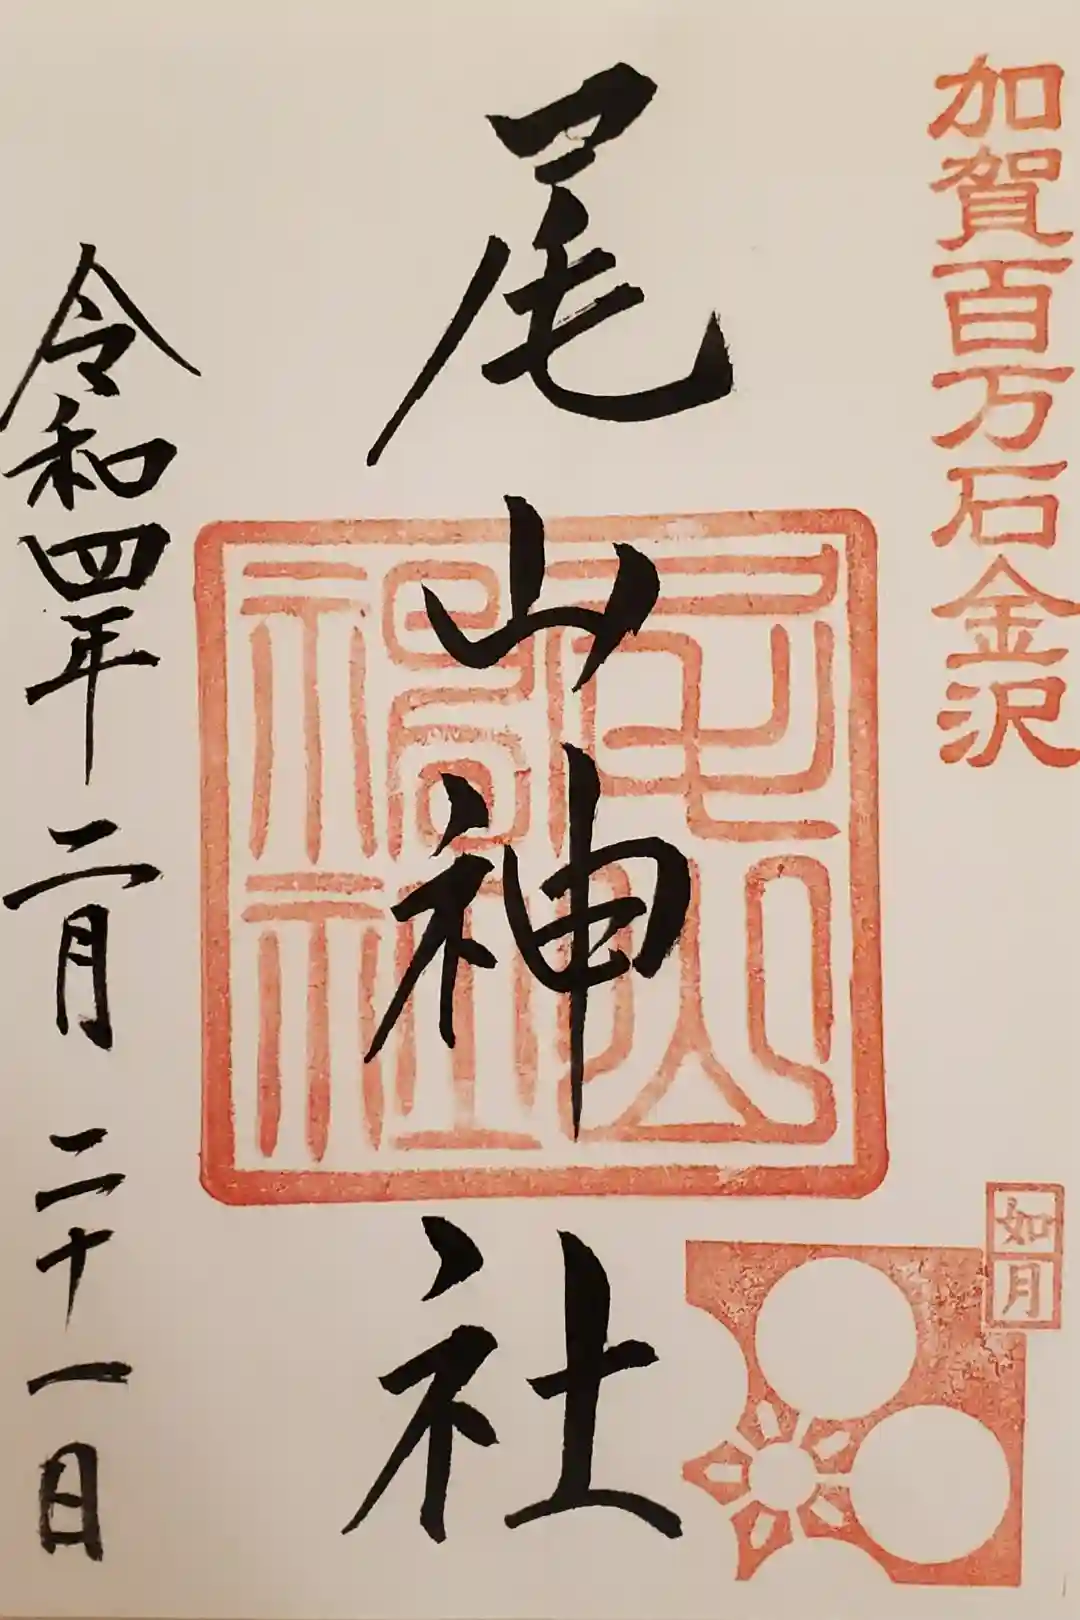 加賀百万石金沢
如月
尾山神社
尾山神社
令和四年二月二十一日